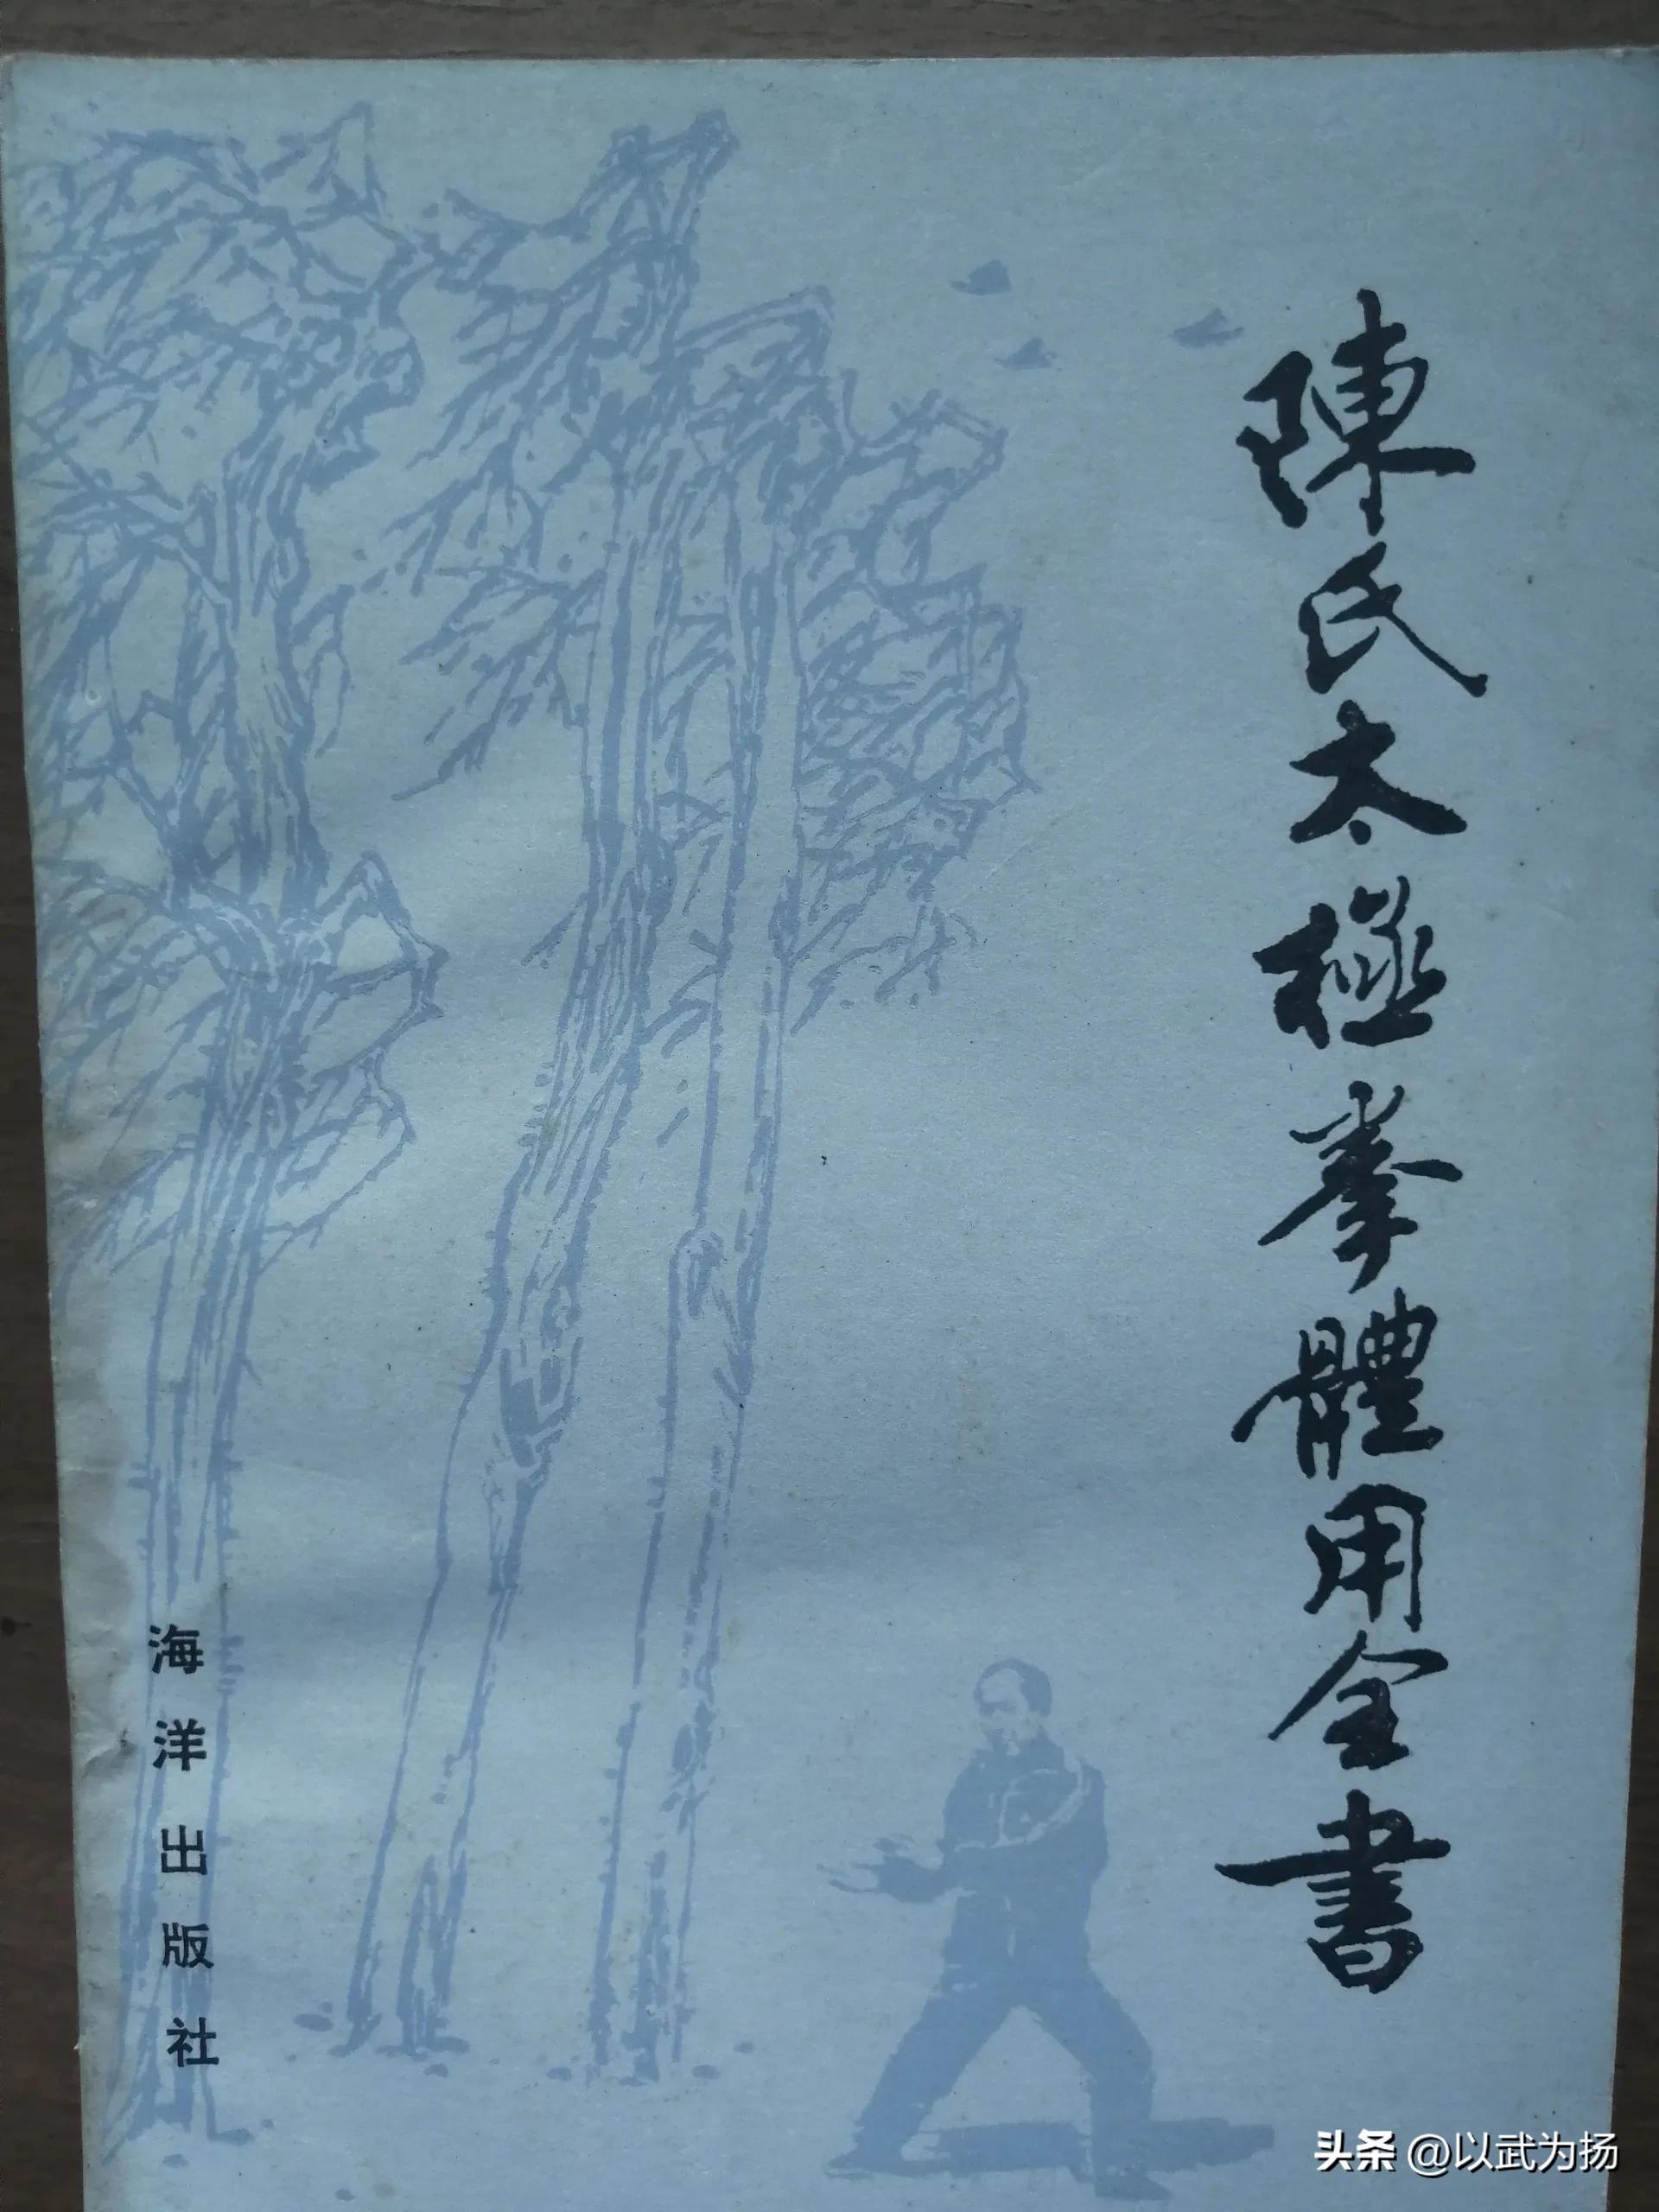 陳氏太極拳體用全書
海洋出版社
头条 @以武为扬